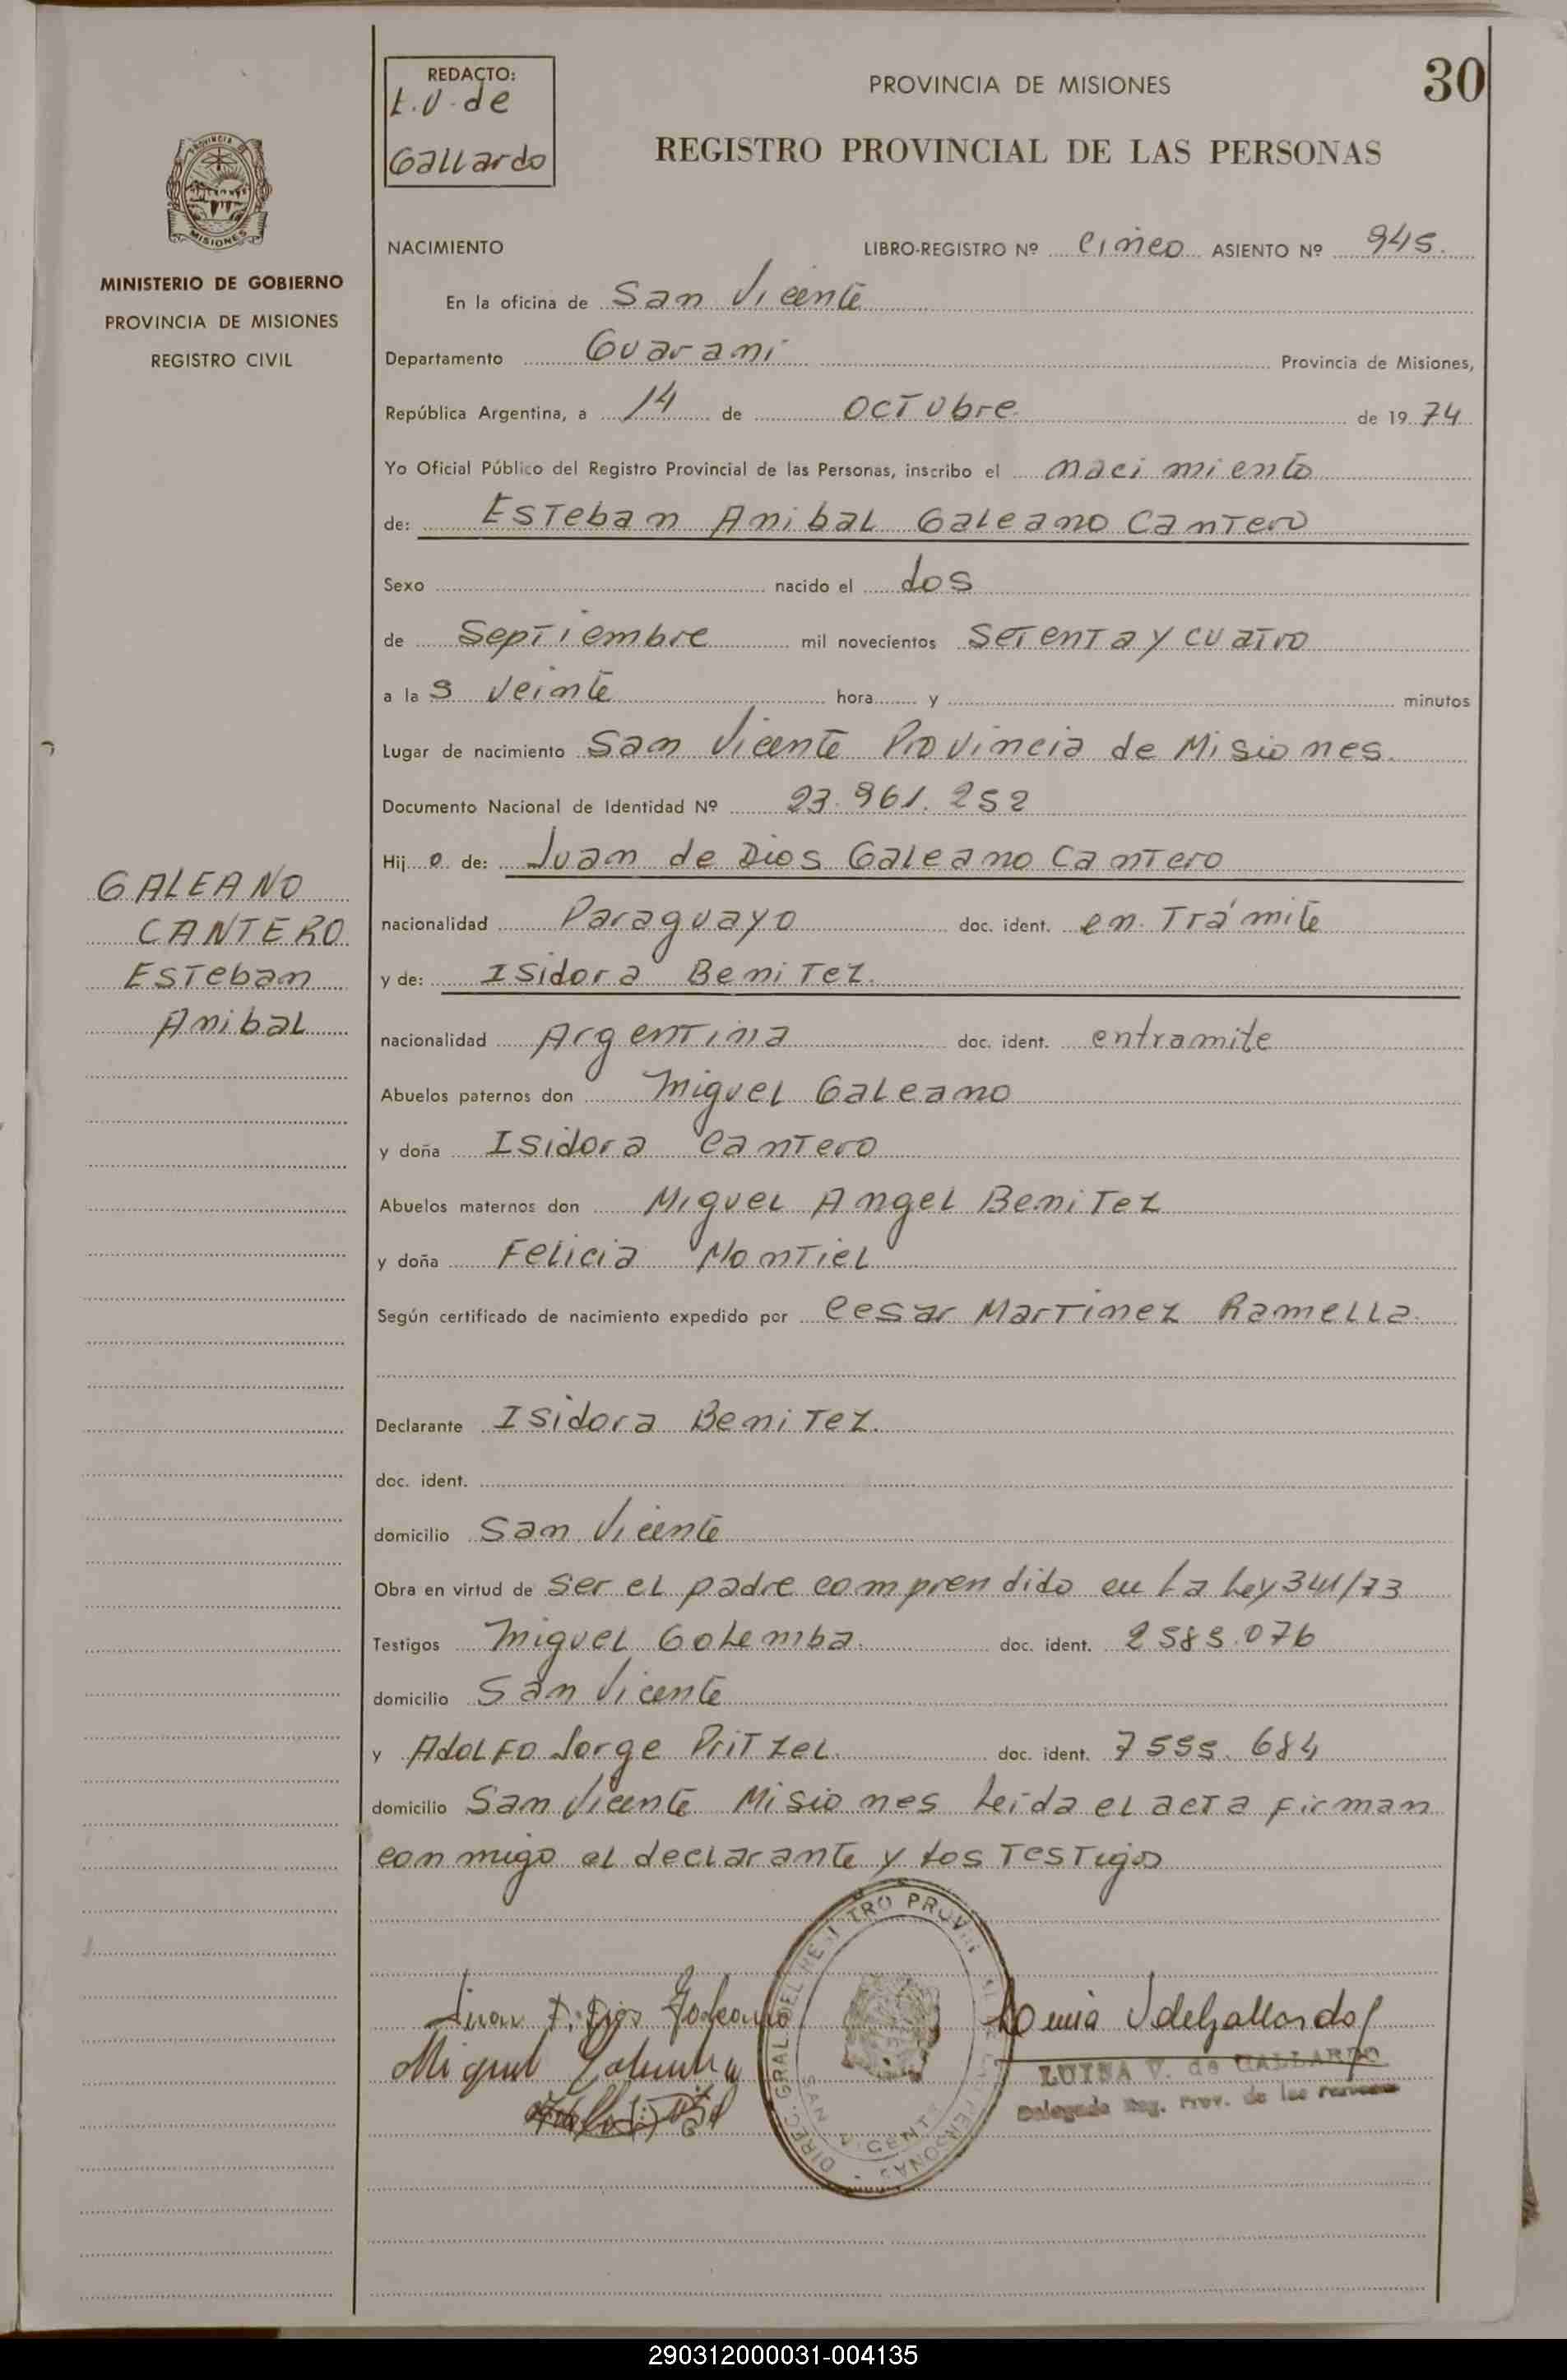 30
REDACTO:
L.V. de
Gallardo
PROVINCIA DE MISIONES
REGISTRO PROVINCIAL DE LAS PERSONAS
PROVINCIA DE
MISIONES
MINISTERIO DE GOBIERNO
PROVINCIA DE MISIONES
REGISTRO CIVIL
NACIMIENTO LIBRO-REGISTRO Nº cinco ASIENTO Nº 945.
En la oficina de San Vicente
Departamento Guarani Provincia de Misiones,
República Argentina, a 14 de octubre de 1974
Yo Oficial Público del Registro Provincial de las Personas, inscribo el nacimiento
de: Esteban Anibal Galeano Cantero
Sexo nacido el dos
de Septiembre mil novecientos setenta y cuatro
a las veinte hora y minutos
Lugar de nacimiento San Vicente Provincia de Misiones.
Documento Nacional de Identidad Nº 23.961.252
Hijo de: Juan de Dios Galeano Cantero
GALEANO
CANTERO
Esteban
Anibal
nacionalidad Paraguayo doc. ident. en Trámite
y de: Isidora Benitez.
nacionalidad Argentina doc. ident. entramite
Abuelos paternos don Miguel Galeano
y doña Isidora Cantero
Abuelos maternos don Miguel Angel Benitez
y doña Felicia Montiel
Según certificado de nacimiento expedido por Cesar Martinez Ramella.
Declarante Isidora Benitez.
doc. ident.
domicilio San Vicente
Obra en virtud de ser el padre comprendido en la Ley 341/73
Testigos Miguel Golemba. doc. ident. 2585.076
domicilio San Vicente
y Adolfo Jorge Pritzel. doc. ident. 7555.684
domicilio San Vicente Misiones Leida el acta firman
conmigo el declarante y los Testigos
Juan D. Dios Galeano
Miguel Golemba
DIREC. GRAL. DEL REGISTRO PROVINCIAL DE LAS PERSONAS
SAN VICENTE
LUISA V. de GALLARDO
Delegada Reg. Prov. de las Personas
290312000031-004135